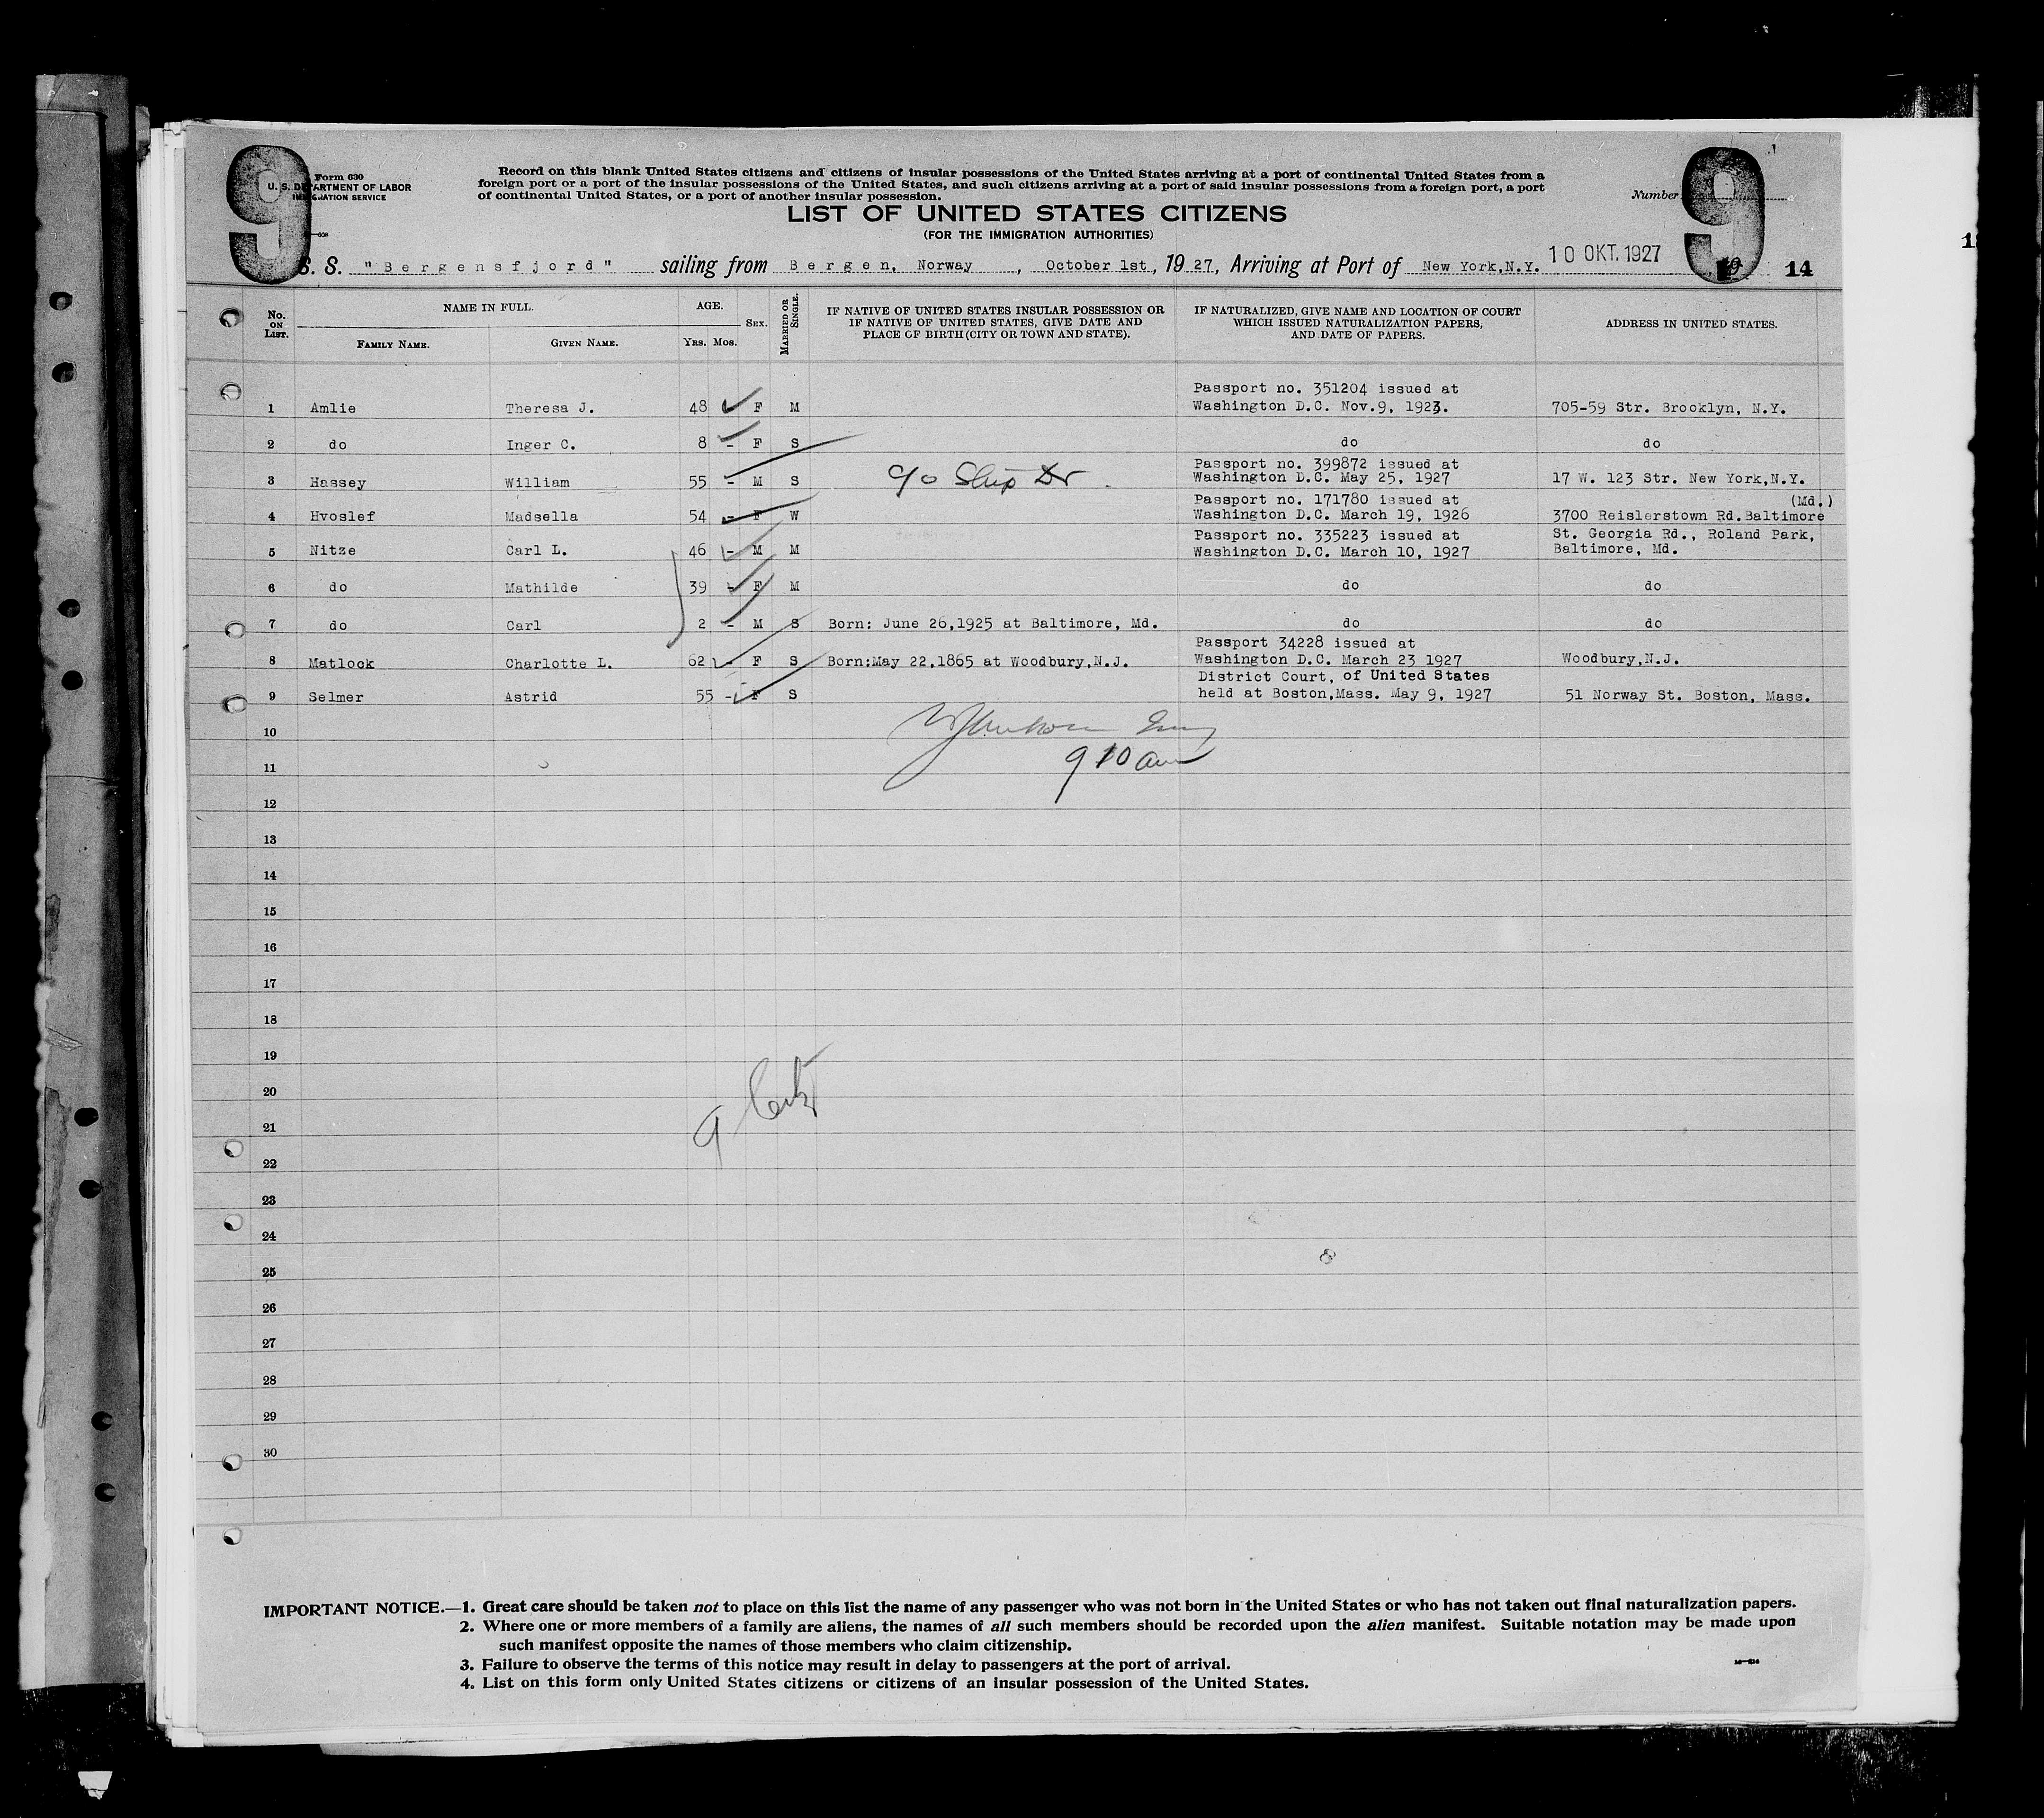 9
9
Form 630
U. S. DEPARTMENT OF LABOR
IMMIGRATION SERVICE
Record on this blank United States citizens and citizens of insular possessions of the United States arriving at a port of continental United States from a
foreign port or a port of the insular possessions of the United States, and such citizens arriving at a port of said insular possessions from a foreign port, a port
of continental United States, or a port of another insular possession.
Number
LIST OF UNITED STATES CITIZENS
(FOR THE IMMIGRATION AUTHORITIES)
S. S. "Bergensfjord" sailing from Bergen, Norway, October 1st, 1927, Arriving at Port of New York,N.Y. 10 OKT. 1927 14
No. ON LIST. NAME IN FULL. AGE. SEX. MARRIED OR SINGLE. IF NATIVE OF UNITED STATES INSULAR POSSESSION OR IF NATIVE OF UNITED STATES, GIVE DATE AND PLACE OF BIRTH (CITY OR TOWN AND STATE). IF NATURALIZED, GIVE NAME AND LOCATION OF COURT WHICH ISSUED NATURALIZATION PAPERS, AND DATE OF PAPERS. ADDRESS IN UNITED STATES.
FAMILY NAME. GIVEN NAME. YRS. MOS.
Passport no. 351204 issued at
1 Amlie Theresa J. 48 F M Washington D.C. Nov.9, 1923. 705-59 Str. Brooklyn, N.Y.
2 do Inger C. 8 - F S do do
Passport no. 399872 issued at
3 Hassey William 55 - M S c/o Ship Dr Washington D.C. May 25, 1927 17 W. 123 Str. New York,N.Y.
Passport no. 171780 issued at (Md.)
4 Hvoslef Madsella 54 - F W Washington D.C. March 19, 1926 3700 Reislerstown Rd.Baltimore
Passport no. 335223 issued at St. Georgia Rd., Roland Park,
5 Nitze Carl L. 46 - M M Washington D.C. March 10, 1927 Baltimore, Md.
6 do Mathilde 39 - F M do do
7 do Carl 2 - M S Born: June 26,1925 at Baltimore, Md. do do
Passport 34228 issued at
8 Matlock Charlotte L. 62 - F S Born:May 22,1865 at Woodbury,N.J. Washington D.C. March 23 1927 Woodbury,N.J.
District Court, of United States
9 Selmer Astrid 55 - F S held at Boston,Mass. May 9, 1927 51 Norway St. Boston, Mass.
10
9 10 am
11
12
13
14
15
16
17
18
19
20
9
21
22
23
24
25
26
27
28
29
30
IMPORTANT NOTICE.—1. Great care should be taken not to place on this list the name of any passenger who was not born in the United States or who has not taken out final naturalization papers.
2. Where one or more members of a family are aliens, the names of all such members should be recorded upon the alien manifest. Suitable notation may be made upon
such manifest opposite the names of those members who claim citizenship.
3. Failure to observe the terms of this notice may result in delay to passengers at the port of arrival.
4. List on this form only United States citizens or citizens of an insular possession of the United States.